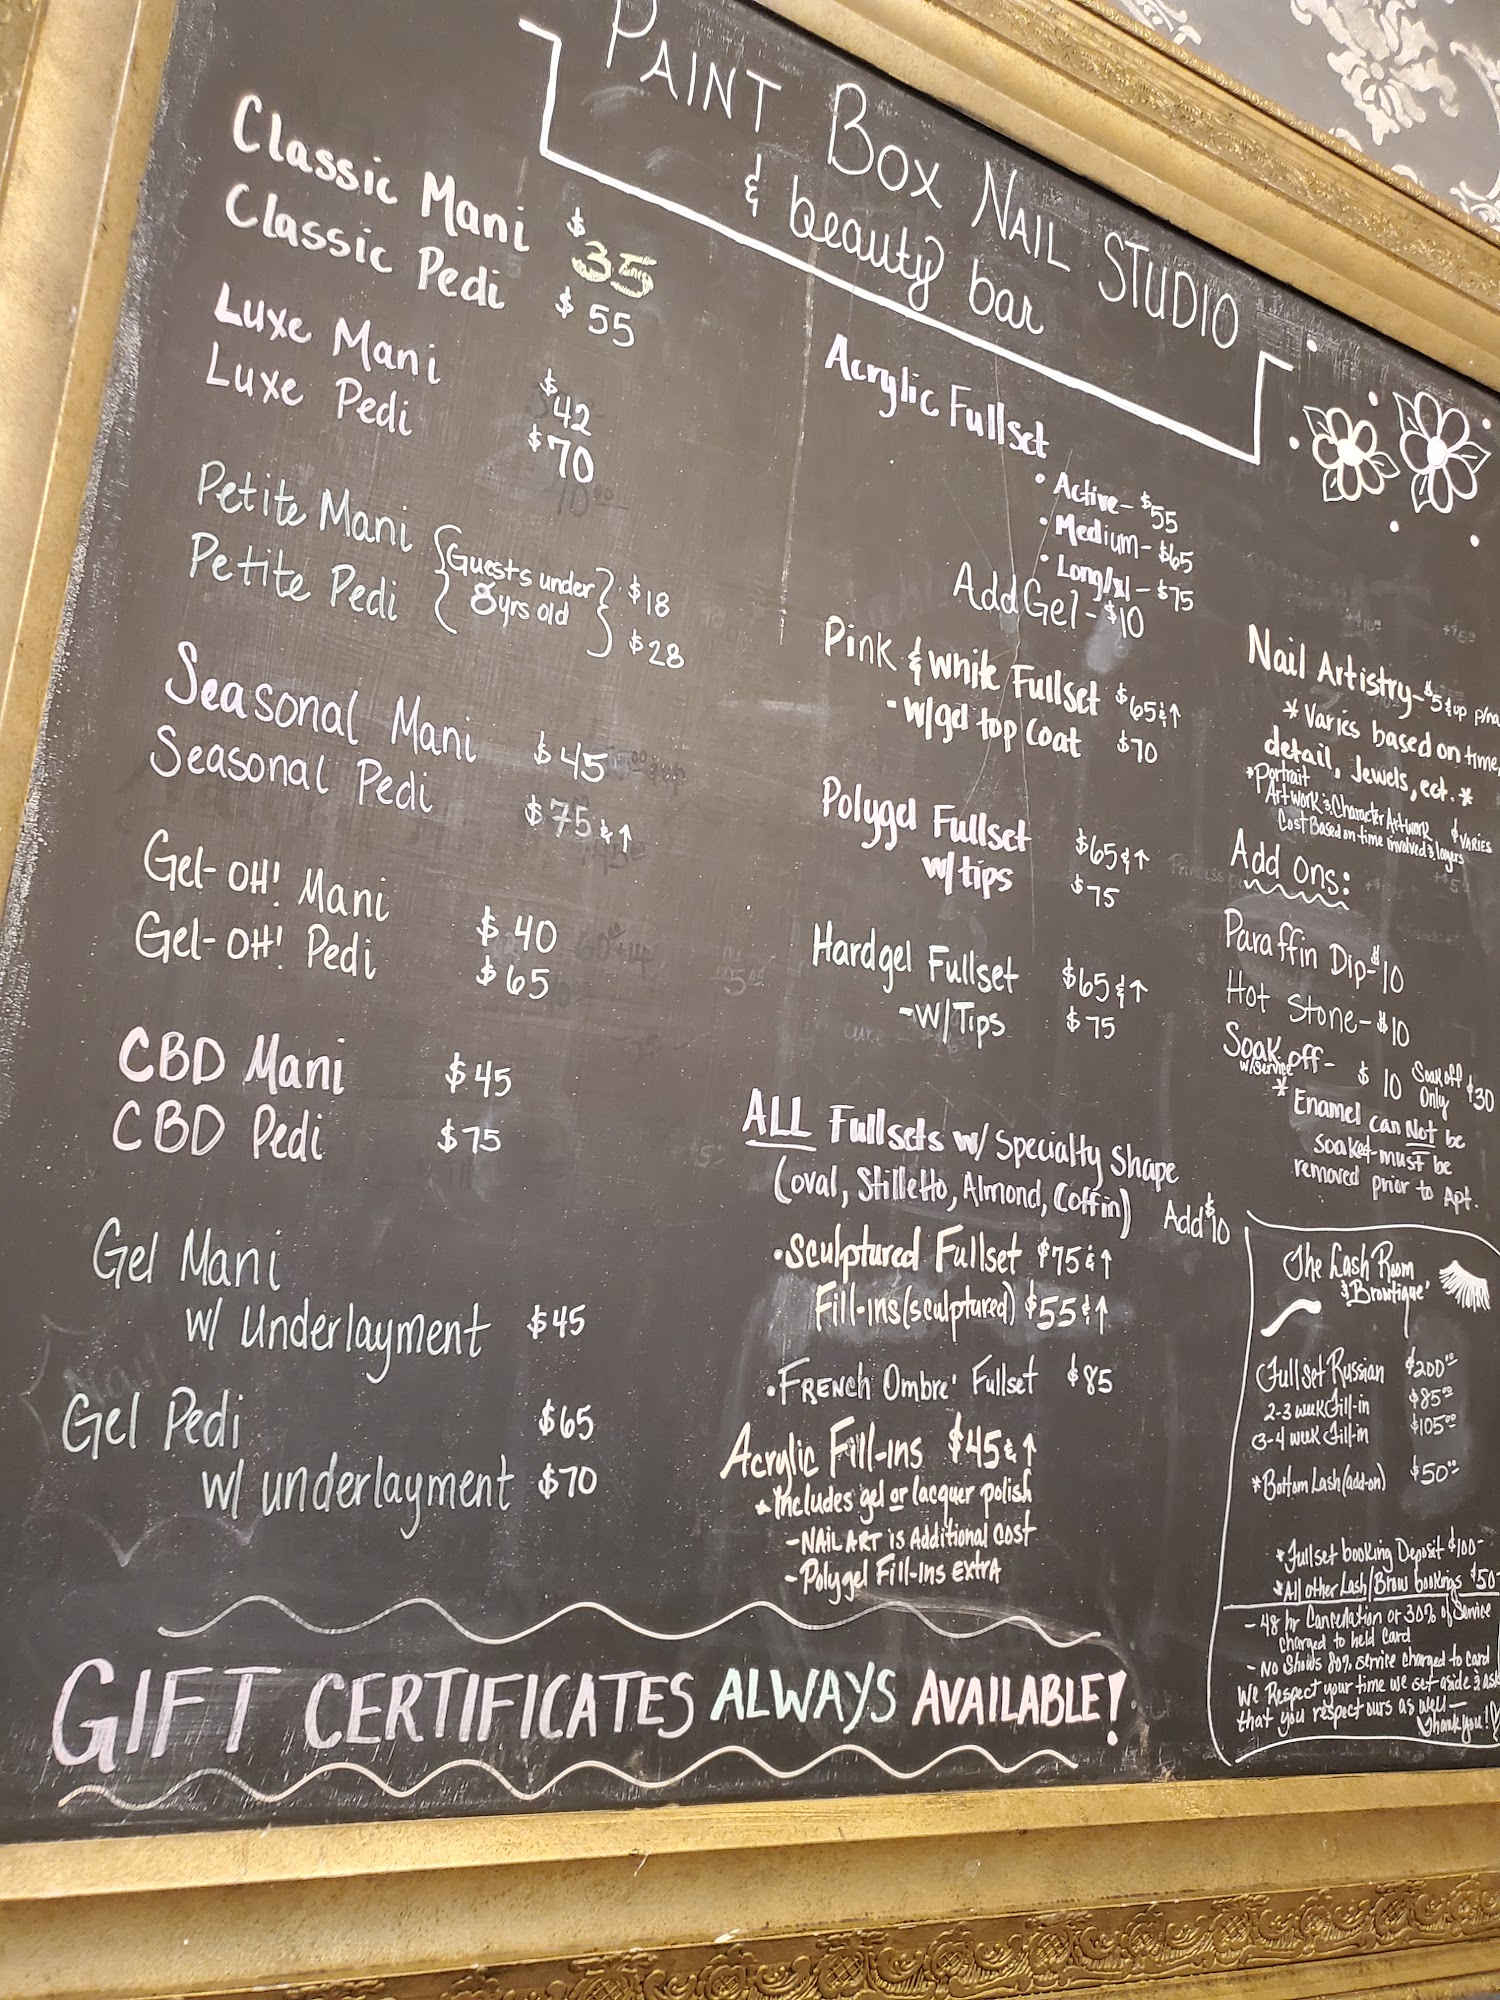 PAINT BOX NAIL STUDIO
& beauty bar
Classic Mani $35
Classic Pedi $55
Luxe Mani $42
Luxe Pedi $70
Petite Mani {Guests under} $18
Petite Pedi {8yrs old} $28
Seasonal Mani $45
Seasonal Pedi $75 & ↑
Gel-OH! Mani $40
Gel-OH! Pedi $65
CBD Mani $45
CBD Pedi $75
Gel Mani
w/ Underlayment $45
Gel Pedi $65
w/ underlayment $70
Acrylic Fullset
• Active - $55
• Medium - $65
• Long/xl - $75
Add Gel - $10
Pink & white Fullset $65 & ↑
- w/gel top coat $70
Polygel Fullset $65 & ↑
w/tips $75
Hardgel Fullset $65 & ↑
- w/Tips $75
ALL Fullsets w/ Specialty Shape
(oval, Stilletto, Almond, Coffin) Add $10
• Sculptured Fullset $75 & ↑
Fill-ins (sculptured) $55 & ↑
• FRENCH Ombre' Fullset $85
Acrylic Fill-ins $45 & ↑
* includes gel or lacquer polish
- NAIL ART is Additional Cost
- Polygel Fill-Ins EXTRA
Nail Artistry - $5 & up
* Varies based on time,
detail, Jewels, ect. *
* Portrait
Artwork & Character Artwork $VARIES
Cost Based on time involved & layers
Add ons:
Paraffin Dip - $10
Hot Stone - $10
Soak off - $10 Soak off $30
w/service Only
* Enamel can Not be
soaked - must be
removed prior to Apt.
The Lash Room
& Browtique'
Fullset Russian $200.00
2-3 week Fill-in $85.00
3-4 week Fill-in $105.00
* Bottom Lash (add-on) $50.00
* Fullset booking Deposit $100-
* All other Lash/Brow bookings $50-
- 48 hr Cancelation or 30% of Service
charged to held Card
- No Shows 80% service charged to Card
We Respect your time we set aside & ask
that you respect ours as well -
Thank you!
GIFT CERTIFICATES ALWAYS AVAILABLE!